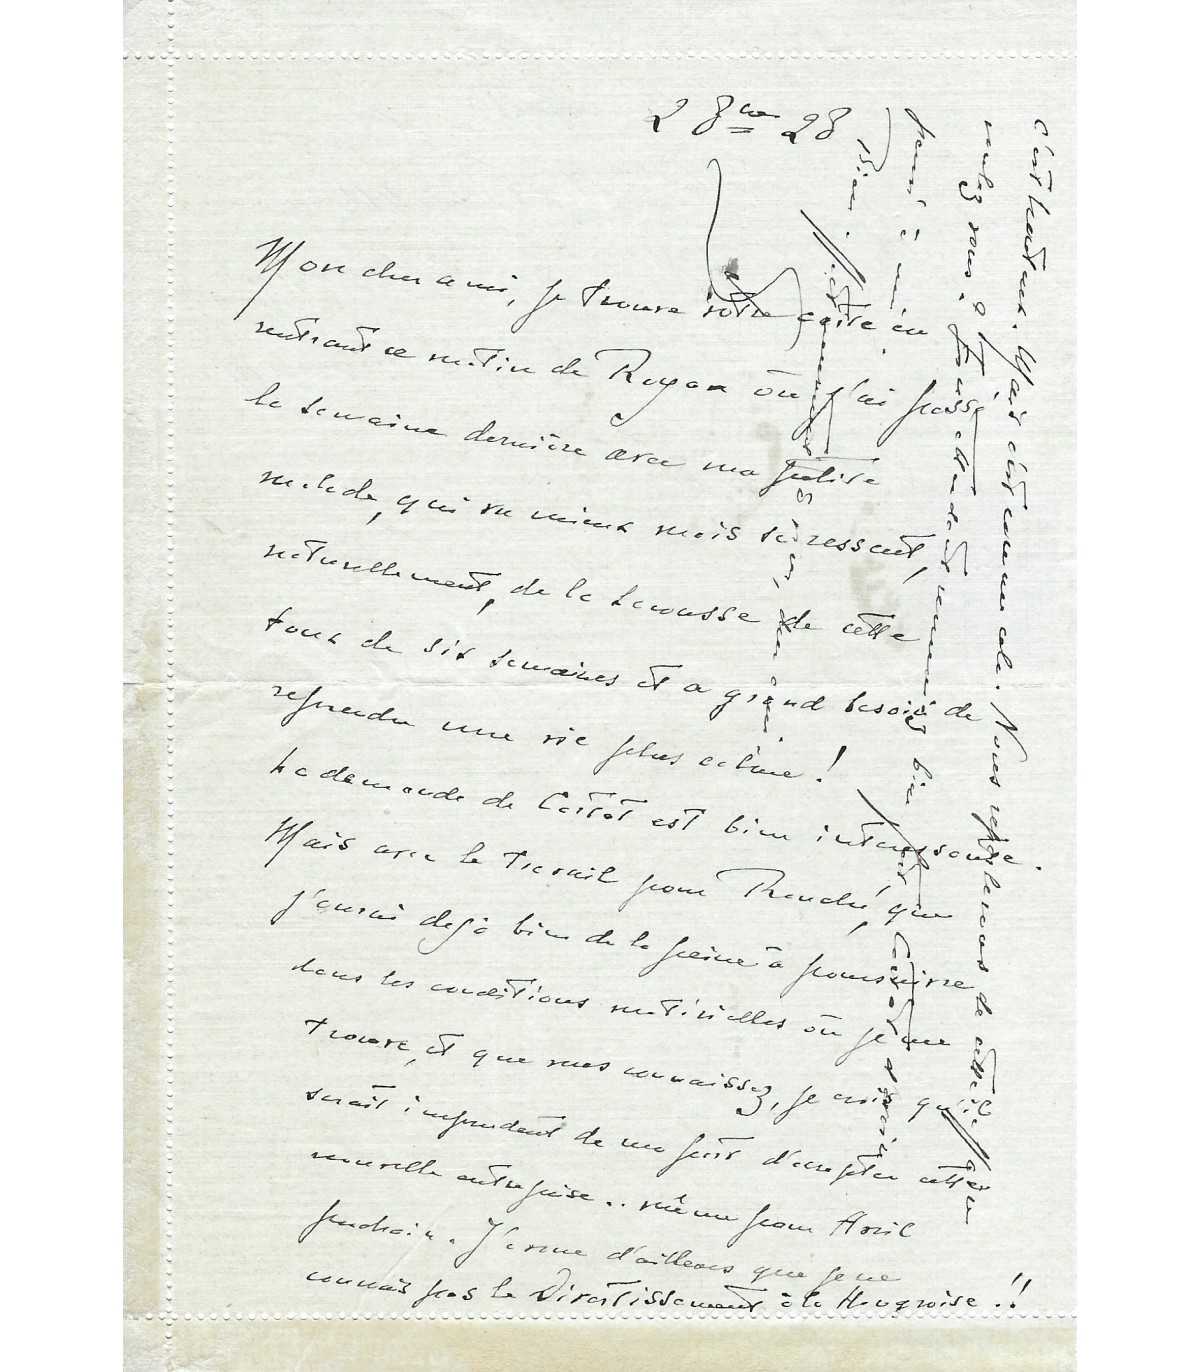 2 8bre 28
Mon cher ami, je trouve votre carte en
rentrant ce matin de Royan où j'ai passé
la semaine dernière avec ma petite
malade, qui va mieux mais se ressent,
naturellement, de la secousse de cette
toux de six semaines et a grand besoin de
reprendre une vie plus calme !
La demande de Cortot est bien intéressante.
Mais avec le travail pour Rouché, que
j'aurai dejà bien de la peine à poursuivre
dans les conditions matérielles où je me
trouve, et que vous connaissez, je crois qu'il
serait imprudent de ma part d'accepter cette
nouvelle entreprise .. même pour Avril
prochain. J'avoue d'ailleurs que je ne
connais pas le Divertissement à la Hongroise .!!
C'est honteux. Mais c'est comme cela. Nous reparlerons de cela si
voulez vous. et En attendant remerciez bien Cortot d'avoir
pensé à moi.
Bien